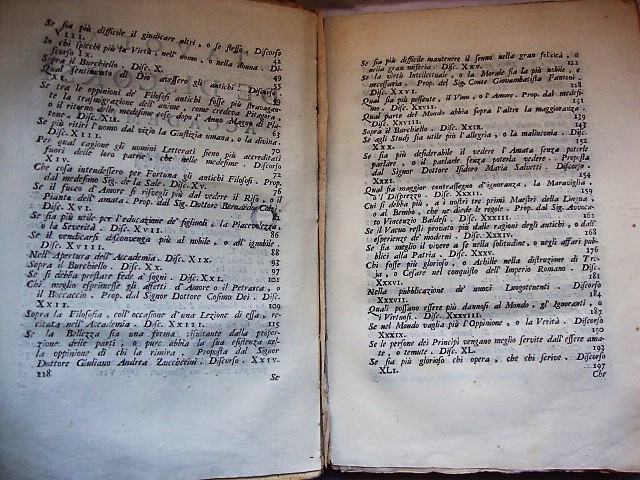 Se sia più difficile il giudicare altri, o se stesso. Discorso
VIII. 42
In chi spicchi più la Virtù, nell'uomo, o nella donna. Di-
scorso IX. 49
Sopra il Burchiello. Disc. X. 55
Qual sentimento di Dio avessero gli antichi. Discorso
XI. 59
Se tra le opinioni de' Filosofi antichi fosse più stravagan-
te la trasmigrazione dell'anime, come credeva Pitagora,
o il ritorno delle medesime cose dopo l'Anno Magno di Pla-
tone. Disc. XII. 63
Se più ritiri l'uomo dal vizio la Giustizia umana, o la divina.
XIII. 70
Per qual cagione gli uomini Letterati sieno più accreditati
fuori delle loro patrie, che nelle medesime. Discorso
XIV. 72
Che cosa intendessero per Fortuna gli antichi Filosofi. Prop.
dal medesimo Sig. de la Sale. Disc. XV. 76
Se il fuoco d'Amore si risvegli più dal vedere il Riso, o il
Pianto dell'amata. Prop. dal Sig. Dottor Bernardo
Disc. XVI.
Se sia più utile per l'educazione de' figliuoli, la Piacevolezza,
o la Severità. Disc. XVII. 86
Se il vendicarsi disconvenga più al nobile, o all'ignobile.
XVIII. 88
Nell'Apertura dell'Accademia. Disc. XIX. 93
Sopra il Burchiello. Disc. XX. 97
Se si debba prestare fede a' sogni. Disc. XXI. 101
Chi meglio esprimesse gli affetti d'Amore o il Petrarca, o
il Boccaccio. Prop. dal Signor Dottore Cosimo Dei. Disc.
XXII. 109
Sopra la Filosofia, coll'occasione d'una Lezione di essa, re-
citata nell'Accademia. Disc. XXIII. 115
la Bellezza sia una forma risultante dalla propor-
zione delle parti, o pure abbia la sua esistenza nel-
la opinione di chi la rimira. Proposta dal Signor
Dottore Giuliano Andrea Zuccherini. Discorso XXIV.
118 Se
Se sia più difficile mantenere il senno nella gran felicità, o
nella gran miseria. Disc. XXV. 122
Se la virtù Intellettuale, o la Morale sia la più nobile, e
necessaria. Prop. dal Sig. Conte Giovambatista Fantoni.
Disc. XXVI. 128
Qual sia più possente, il Vino, o l'Amore. Prop. dal medesi-
mo. Disc. XXVII. 131
Qual parte del Mondo abbia sopra l'altre la maggioranza.
Disc. XXVIII. 139
Sopra il Burchiello. Disc. XXIX. 143
Se agli Studj sia utile più l'allegria, o la malinconia. Disc.
XXX. 152
Se sia più desiderabile il vedere l'Amata senza poterle
parlare, o il parlarle senza poterla vedere. Proposta
dal Signor Dottore Isidoro Maria Salvetti. Discorso
XXXI. 154
Qual sia maggior contrassegno d'ignoranza, la Maraviglia,
o il Disprezzo. Disc. XXXII. 159
Cui si debba più, a i nostri tre primi Maestri della Lingua,
o al Bembo, che ne diede le regole. Prop. dal Sig. Avvoca-
to Vincenzio Baldesi. Disc. XXXIII. 161
Se il Vacuo resti provato più dalle ragioni degli antichi, o dall'
esperienze de' moderni. Disc. XXXIV. 168
Se sia meglio il vivere a se nella solitudine, o negli affari pub-
blici alla Patria. Disc. XXXV. 176
Chi fosse più glorioso, o Achille nella distruzione di Tro-
ja, o Cesare nel conquisto dell'Imperio Romano. Disc.
XXXVI. 181
Nella pubblicazione de' nuovi Luogotenenti. Discorso
XXXVII. 184
Quali possano essere più dannosi al Mondo, gl'Ignoranti, o
i Virtuosi. Disc. XXXVIII. 187
Se nel Mondo vaglia più l'Opinione, o la Verità. Discorso
XXXIX. 190
Se le persone dei Principi vengano meglio servite dall'essere ama-
te, o temute. Disc. XL. 193
Se sia più glorioso chi opera, che chi scrive. Discorso
XLI. 197
Che